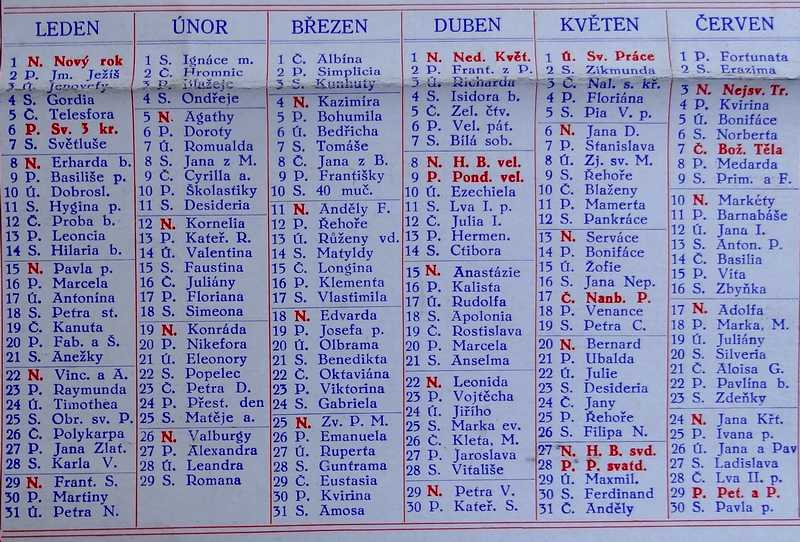 LEDEN
1 N. Nový rok
2 P. Jm. Ježíš
3 Ú. Jenovefy
4 S. Gordia
5 Č. Telesfora
6 P. Sv. 3 kr.
7 S. Světluše
8 N. Erharda b.
9 P. Basiliše p.
10 Ú. Dobrosl.
11 S. Hygina p.
12 Č. Proba b.
13 P. Leoncia
14 S. Hilaria b.
15 N. Pavla p.
16 P. Marcela
17 Ú. Antonína
18 S. Petra st.
19 Č. Kanuta
20 P. Fab. a Š.
21 S. Anežky
22 N. Vinc. a A.
23 P. Raymunda
24 Ú. Timothea
25 S. Obr. sv. P.
26 Č. Polykarpa
27 P. Jana Zlat.
28 S. Karla V.
29 N. Frant. S.
30 P. Martiny
31 Ú. Petra N.
ÚNOR
1 S. Ignáce m.
2 Č. Hromnic
3 P. Blažeje
4 S. Ondřeje
5 N. Agathy
6 P. Doroty
7 Ú. Romualda
8 S. Jana z M.
9 Č. Cyrilla a.
10 P. Školastiky
11 S. Desideria
12 N. Kornelia
13 P. Kateř. R.
14 Ú. Valentina
15 S. Faustina
16 Č. Juliány
17 P. Floriana
18 S. Simeona
19 N. Konráda
20 P. Nikefora
21 Ú. Eleonory
22 S. Popelec
23 Č. Petra D.
24 P. Přest. den
25 S. Matěje a.
26 N. Valburgy
27 P. Alexandra
28 Ú. Leandra
29 S. Romana
BŘEZEN
1 Č. Albína
2 P. Simplicia
3 S. Kunhuty
4 N. Kazimíra
5 P. Bohumila
6 Ú. Bedřicha
7 S. Tomáše
8 Č. Jana z B.
9 P. Františky
10 S. 40 muč.
11 N. Anděly F.
12 P. Řehoře
13 Ú. Růženy vd.
14 S. Matyldy
15 Č. Longina
16 P. Klementa
17 S. Vlastimila
18 N. Edvarda
19 P. Josefa p.
20 Ú. Olbrama
21 S. Benedikta
22 Č. Oktaviána
23 P. Viktorina
24 S. Gabriela
25 N. Zv. P. M.
26 P. Emanuela
27 Ú. Ruperta
28 S. Guntrama
29 Č. Eustasia
30 P. Kvirina
31 S. Amosa
DUBEN
1 N. Ned. Květ.
2 P. Frant. z P.
3 Ú. Richarda
4 S. Isidora b.
5 Č. Zel. čtv.
6 P. Vel. pát.
7 S. Bílá sob.
8 N. H. B. vel.
9 P. Pond. vel.
10 Ú. Ezechiela
11 S. Lva I. p.
12 Č. Julia I.
13 P. Hermen.
14 S. Ctibora
15 N. Anastázie
16 P. Kalista
17 Ú. Rudolfa
18 S. Apolonia
19 Č. Rostislava
20 P. Marcela
21 S. Anselma
22 N. Leonida
23 P. Vojtěcha
24 Ú. Jiřího
25 S. Marka ev.
26 Č. Kleta, M.
27 P. Jaroslava
28 S. Vitališe
29 N. Petra V.
30 P. Kateř. S.
KVĚTEN
1 Ú. Sv. Práce
2 S. Zikmunda
3 Č. Nal. s. kř.
4 P. Floriána
5 S. Pia V. p.
6 N. Jana D.
7 P. Stanislava
8 Ú. Zj. sv. M.
9 S. Řehoře
10 Č. Blaženy
11 P. Mamerta
12 S. Pankráce
13 N. Serváce
14 P. Bonifáce
15 Ú. Žofie
16 S. Jana Nep.
17 Č. Nanb. P.
18 P. Venance
19 S. Petra C.
20 N. Bernard
21 P. Ubalda
22 Ú. Julie
23 S. Desideria
24 Č. Jany
25 P. Řehoře
26 S. Filipa N.
27 N. H. B. svd.
28 P. P. svatd.
29 Ú. Maxmil.
30 S. Ferdinand
31 Č. Anděly
ČERVEN
1 P. Fortunata
2 S. Erazima
3 N. Nejsv. Tr.
4 P. Kvirina
5 Ú. Bonifáce
6 S. Norberta
7 Č. Bož. Těla
8 P. Medarda
9 S. Prim. a F.
10 N. Markéty
11 P. Barnabáše
12 Ú. Jana I.
13 S. Anton. P.
14 Č. Basilia
15 P. Víta
16 S. Zbyňka
17 N. Adolfa
18 P. Marka, M.
19 Ú. Juliány
20 S. Silveria
21 Č. Aloisa G.
22 P. Pavlína b.
23 S. Zdeňky
24 N. Jana Křt.
25 P. Ivana p.
26 Ú. Jana a Pav
27 S. Ladislava
28 Č. Lva II. p.
29 P. Pet. a P.
30 S. Pavla p.